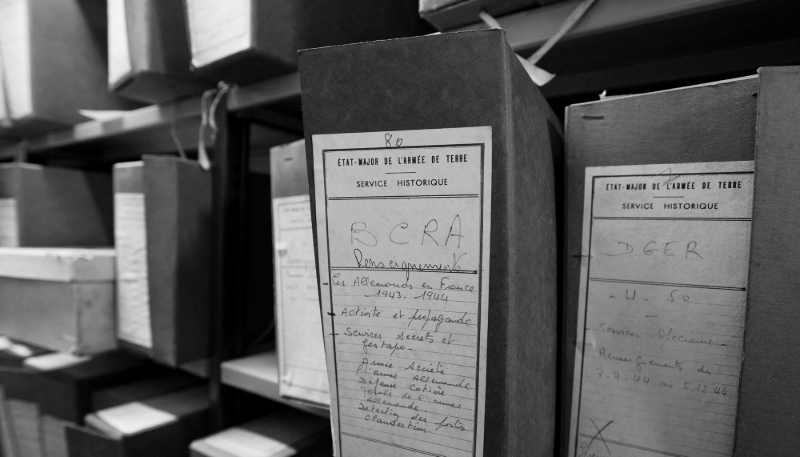 80
ÉTAT-MAJOR DE L'ARMÉE DE TERRE
SERVICE HISTORIQUE
BCRA
Renseignements
Les Allemands en France
1943-1944
- Activité et propagande
- Services Secrets et
gestapo -
Armée Secrète
Allemande
Défense Cotière
de l'armée
Allemande.
Détection des postes
clandestins.
ÉTAT-MAJOR DE L'ARMÉE DE TERRE
SERVICE HISTORIQUE
DGER
50
Services
Renseignements du
7.7.44 au 5.12.44
X